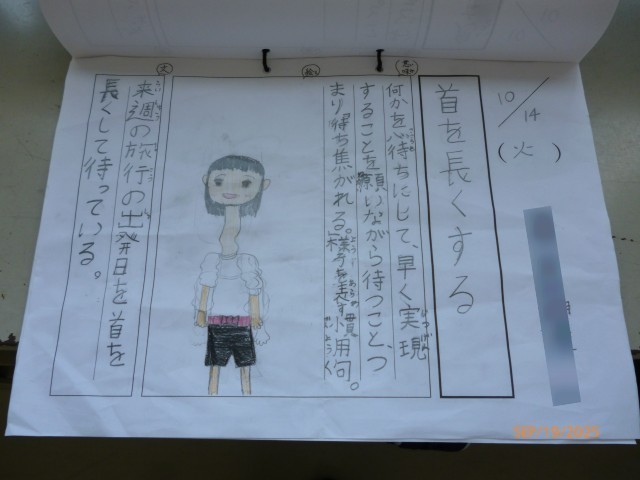 10/14
(火)
首を長くする
意味
何かを心待ちにして、早く実現
することを願いながら待つこと、つ
まり待ち焦がれる。様子を表す慣用句。
絵
文
来週の旅行の出発日を首を
長くして待っている。